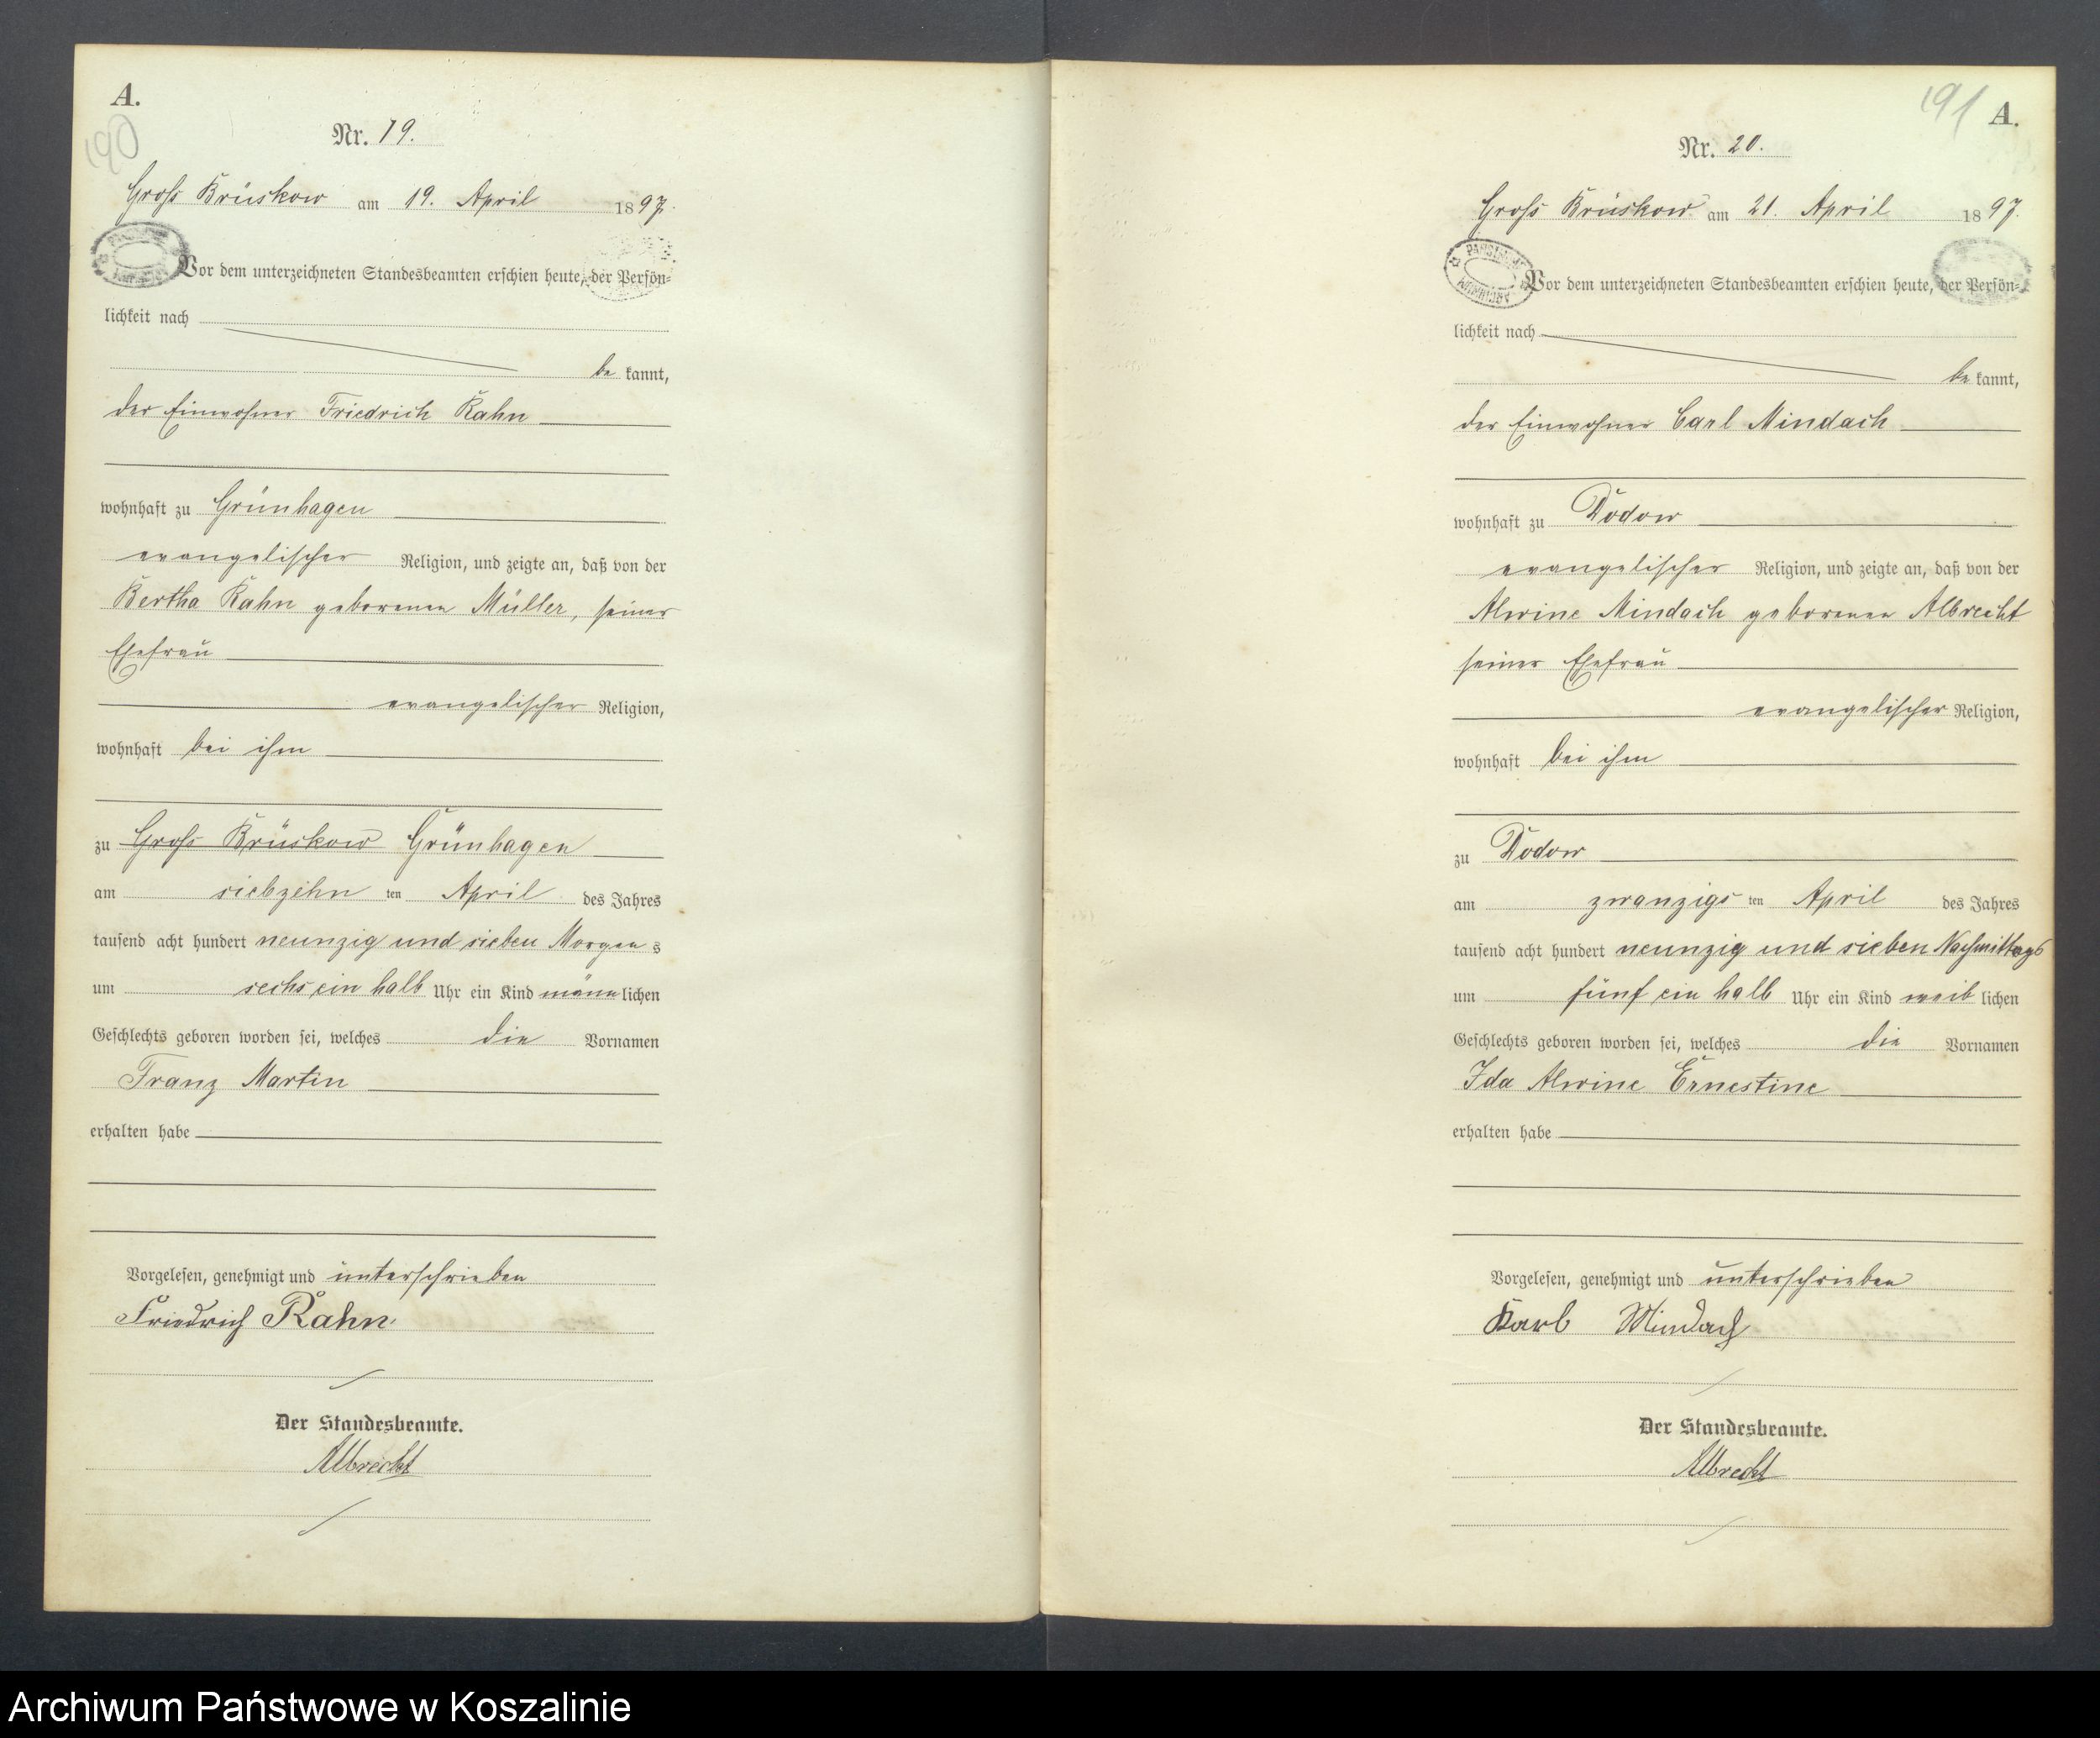 A.
190
Nr. 19.
Gross Brüskow am 19. April 1897.
Vor dem unterzeichneten Standesbeamten erschien heute, der Persön-
lichkeit nach
be kannt,
der Einwohner Friedrich Rahn
wohnhaft zu Grünhagen
evangelischer Religion, und zeigte an, daß von der
Bertha Rahn geborenen Müller, seiner
Ehefrau
evangelischer Religion,
wohnhaft bei ihm
zu Gross Brüskow Grünhagen
am siebzehn ten April des Jahres
tausend acht hundert neunzig und sieben Morgens
um sechs ein halb Uhr ein Kind männlichen
Geschlechts geboren worden sei, welches die Vornamen
Franz Martin
erhalten habe
Vorgelesen, genehmigt und unterschrieben
Friedrich Rahn
Der Standesbeamte.
Albrecht
191
A.
Nr. 20.
Gross Brüskow am 21. April 1897.
Vor dem unterzeichneten Standesbeamten erschien heute, der Persön-
lichkeit nach
be kannt,
der Einwohner Carl Mindach
wohnhaft zu Dodow
evangelischer Religion, und zeigte an, daß von der
Alwine Mindach geborenen Albrecht
seiner Ehefrau
evangelischer Religion,
wohnhaft bei ihm
zu Dodow
am zwanzigs ten April des Jahres
tausend acht hundert neunzig und sieben Nachmittags
um fünf ein halb Uhr ein Kind weib lichen
Geschlechts geboren worden sei, welches die Vornamen
Ida Alwine Ernestine
erhalten habe
Vorgelesen, genehmigt und unterschrieben
Karl Mindach
Der Standesbeamte.
Albrecht
Archiwum Państwowe w Koszalinie